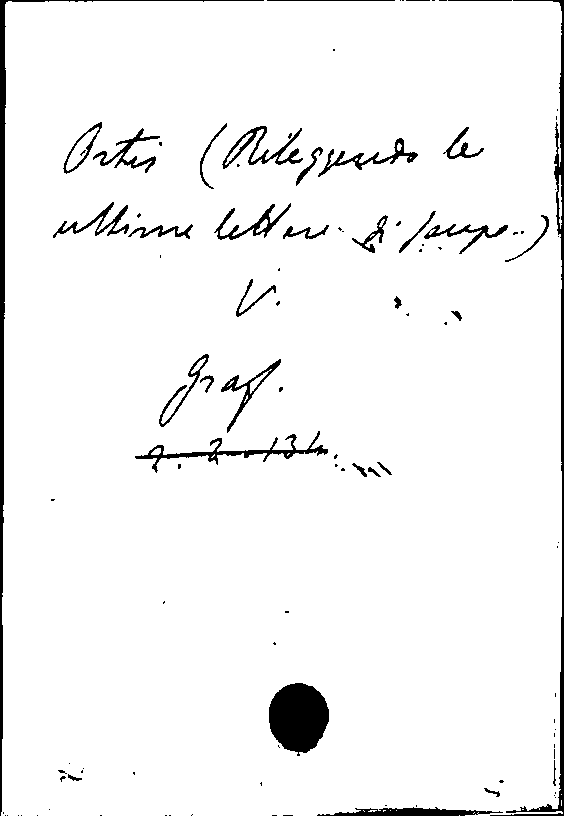 Ortis (Rileggendo le
ultime lettere di Jacopo..)
V.
Graf.
2. 2. 134